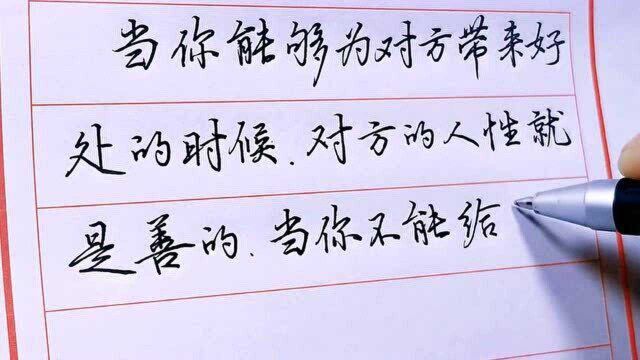 当你能够为对方带来好
处的时候.对方的人性就
是善的.当你不能给